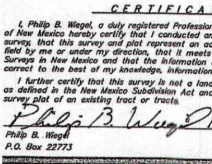 CERTIFICA
I, Philip B. Wiegel, a duly registered Profession
of New Mexico hereby certify that I conducted an
survey, that this survey and plat represent an ac
field by me or under my direction, that it meets
Surveys in New Mexico and that the information
correct to the best of my knowledge, information
I further certify that this survey is not a land
as defined in the New Mexico Subdivision Act and
survey plat of an existing tract or tracts.
Philip B Wiegel
Philip B. Wiegel
P.O. Box 22773